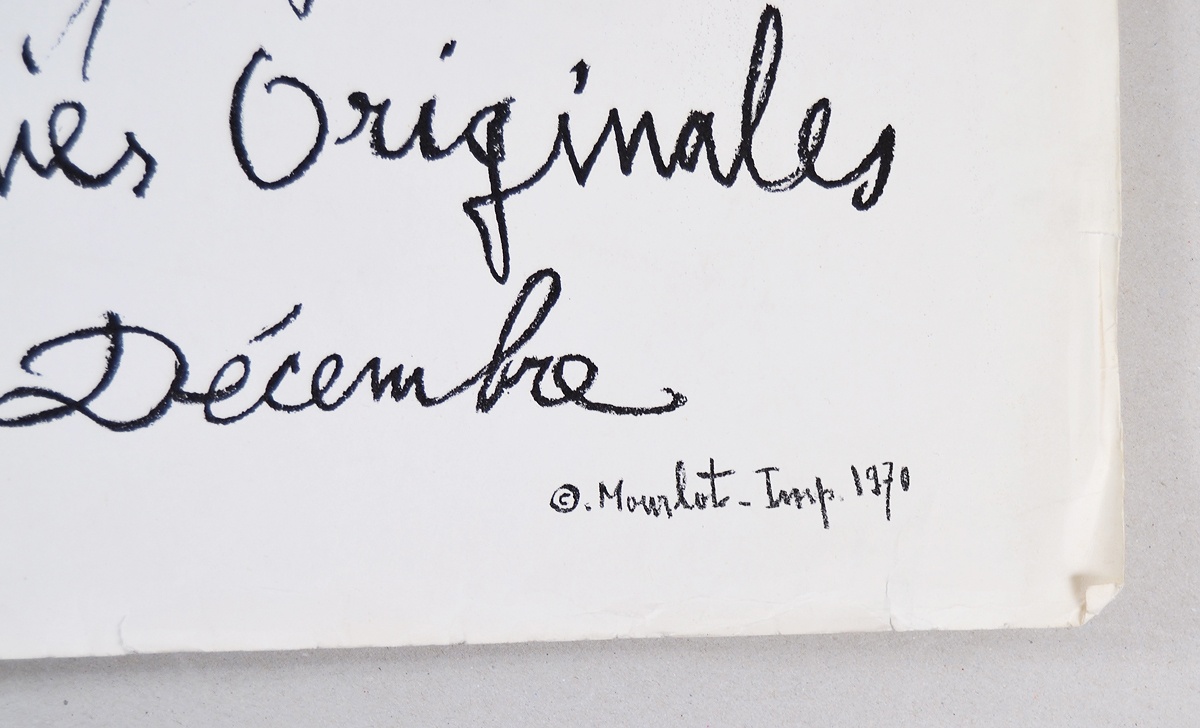 Originales
Décembre
©. Mourlot - Imp. 1970